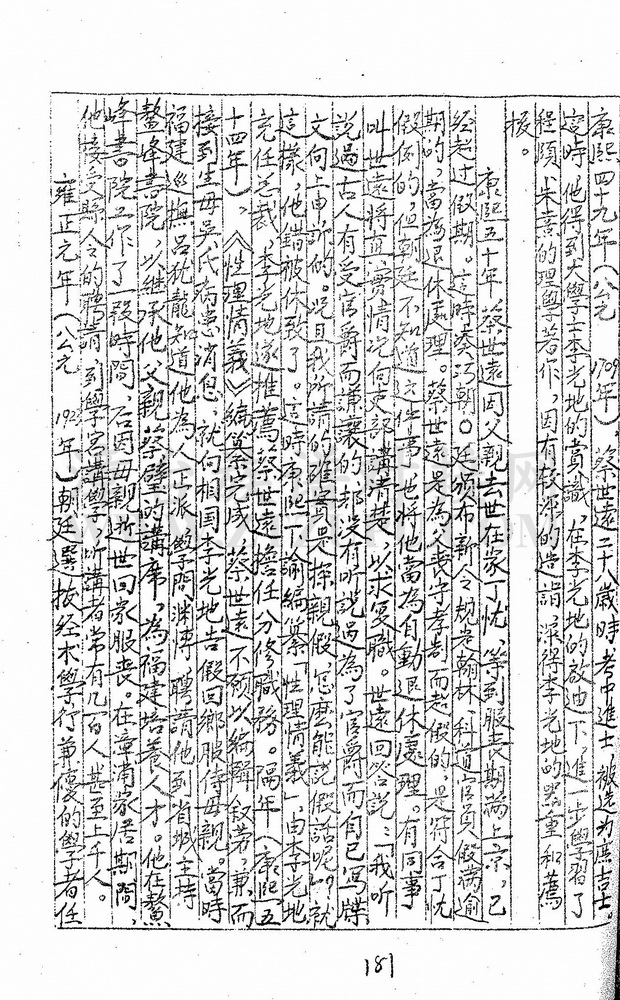 康熙四十九年（公元 1709年），蔡世遠二十八歲時考中進士，被选为庶吉士。
這時，他得到大學士李光地的賞識，在李光地的啟迪下，進一步學習了
程頤、朱熹的理學著作，因有较深的造詣，深得李光地的器重和薦
援。
康熙五十年，蔡世遠因父親去世在家丁忧，等到服喪期滿上京，已
经超过假期。這時奏巧朝廷頒布新令规定翰林、科道官員假滿逾
期的，當為退休處理。蔡世遠是為父喪守孝制而超假的，是符合丁忧
假例的，但朝廷不知道这件事，也將他當為自動退休處理。有同事
叫世遠將真實情况向吏部講清楚，以求复職。世遠回答説：「我听
説過古人有受官爵而謙讓的，却没有听説過為了官爵而自己寫牒
文向上申訴的。况且我所請的確實是探親假，怎麽能説假話呢？」就
這樣，他錯被休致了。這時康熙下諭編纂「性理情義」，由李光地
充任总裁，李光地遂推薦蔡世遠擔任分修職務。隔年（康熙五
十四年），《性理情義》編纂完成，蔡世遠不预以編輯叙若，兼而
接到生母吳氏病患消息，就向相国李光地告假回鄉服侍母親。當時
福建巡撫呂犹龍知道他為人正派，學問淵博，聘請他到省城主持
鰲峰書院，以继承他父親蔡璧的講席，為福建培養人才。他在鰲
峰書院工作了一段時間，后因母親逝世回家服喪。在漳浦家居期間，
他接受縣令的聘請，到學宫講學，听講者常有几百人，甚至上千人。
雍正元年（公元 192 年）朝廷選拔经术學行兼優的學者任
181